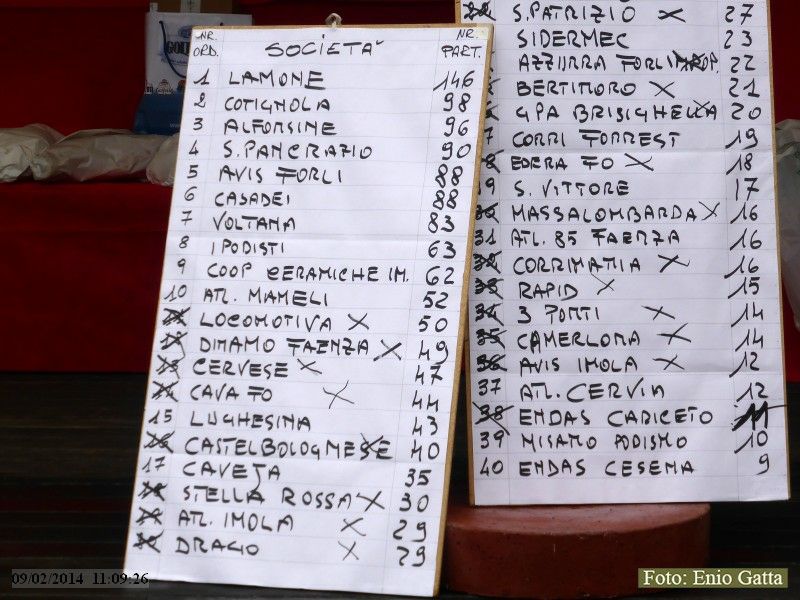 NR. ORD. SOCIETA' NR. PART.
1 LAMONE 146
2 COTIGNOLA 98
3 ALFONSINE 96
4 S. PANCRAZIO 90
5 AVIS FORLI 88
6 CASADEI 88
7 VOLTANA 83
8 I PODISTI 63
9 COOP CERAMICHE IM. 62
10 ATL. MAMELI 52
LOCOMOTIVA X 50
DINAMO FAENZA X 49
13 CERVESE X 47
CAVA FO X 44
15 LUGHESINA 43
CASTELBOLOGNESE 40
17 CAVEJA 35
STELLA ROSSA X 30
ATL. IMOLA X 29
DRAGO X 29
S. PATRIZIO X 27
SIDERMEC 23
AZZURRA FORLIMPOP. 22
BERTINORO X 21
GPA BRISIGHELLA 20
7 CORRI FORREST 19
EDERA FO X 18
9 S. VITTORE 17
30 MASSALOMBARDA X 16
31 ATL. 85 FAENZA 16
CORRIMANIA X 16
33 RAPID X 15
34 3 PONTI X 14
35 CAMERLONA X 14
36 AVIS IMOLA X 12
37 ATL. CERVIA 12
38 ENDAS CARICETO 11
39 MISANO PODISMO 10
40 ENDAS CESENA 9
09/02/2014 11:09:26
Foto: Enio Gatta